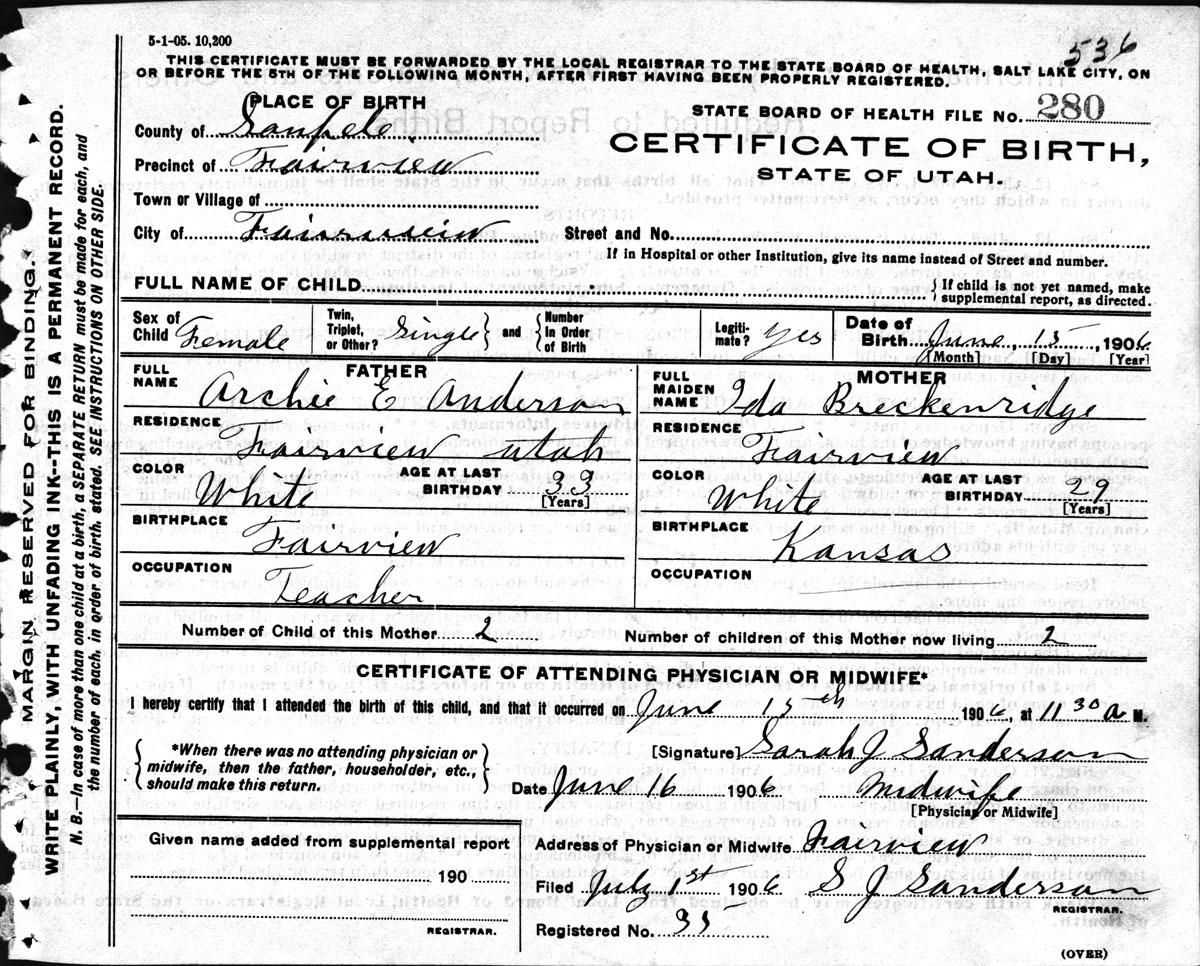 5-1-05. 10,200
536
THIS CERTIFICATE MUST BE FORWARDED BY THE LOCAL REGISTRAR TO THE STATE BOARD OF HEALTH, SALT LAKE CITY, ON
OR BEFORE THE 5TH OF THE FOLLOWING MONTH, AFTER FIRST HAVING BEEN PROPERLY REGISTERED.
PLACE OF BIRTH
STATE BOARD OF HEALTH FILE No. 280
County of Sanpete
CERTIFICATE OF BIRTH,
Precinct of Fairview
STATE OF UTAH.
Town or Village of
City of Fairview Street and No.
If in Hospital or other Institution, give its name instead of Street and number.
FULL NAME OF CHILD { If child is not yet named, make
supplemental report, as directed.
Sex of Child Female
Twin, Triplet, or Other? Single } and { Number In Order of Birth
Legitimate? Yes
Date of Birth June 15, 1906
[Month] [Day] [Year]
FATHER
FULL NAME Archie E Anderson
RESIDENCE Fairview Utah
COLOR White AGE AT LAST BIRTHDAY 33
[Years]
BIRTHPLACE Fairview
OCCUPATION Teacher
MOTHER
FULL MAIDEN NAME Ida Breckenridge
RESIDENCE Fairview
COLOR White AGE AT LAST BIRTHDAY 29
[Years]
BIRTHPLACE Kansas
OCCUPATION
Number of Child of this Mother 2 Number of children of this Mother now living 2
CERTIFICATE OF ATTENDING PHYSICIAN OR MIDWIFE*
I hereby certify that I attended the birth of this child, and that it occurred on June 15th 1906, at 11 30 a M.
{ *When there was no attending physician or
midwife, then the father, householder, etc.,
should make this return. }
[Signature] Sarah J Sanderson
Date June 16 1906 Midwife
[Physician or Midwife]
Given name added from supplemental report
190
REGISTRAR.
Address of Physician or Midwife Fairview
Filed July 1st 1906 S J Sanderson
REGISTRAR.
Registered No. 35
(OVER)
MARGIN RESERVED FOR BINDING.
WRITE PLAINLY, WITH UNFADING INK—THIS IS A PERMANENT RECORD.
N. B.—In case of more than one child at a birth, a SEPARATE RETURN must be made for each, and
the number of each, in order of birth, stated. SEE INSTRUCTIONS ON OTHER SIDE.